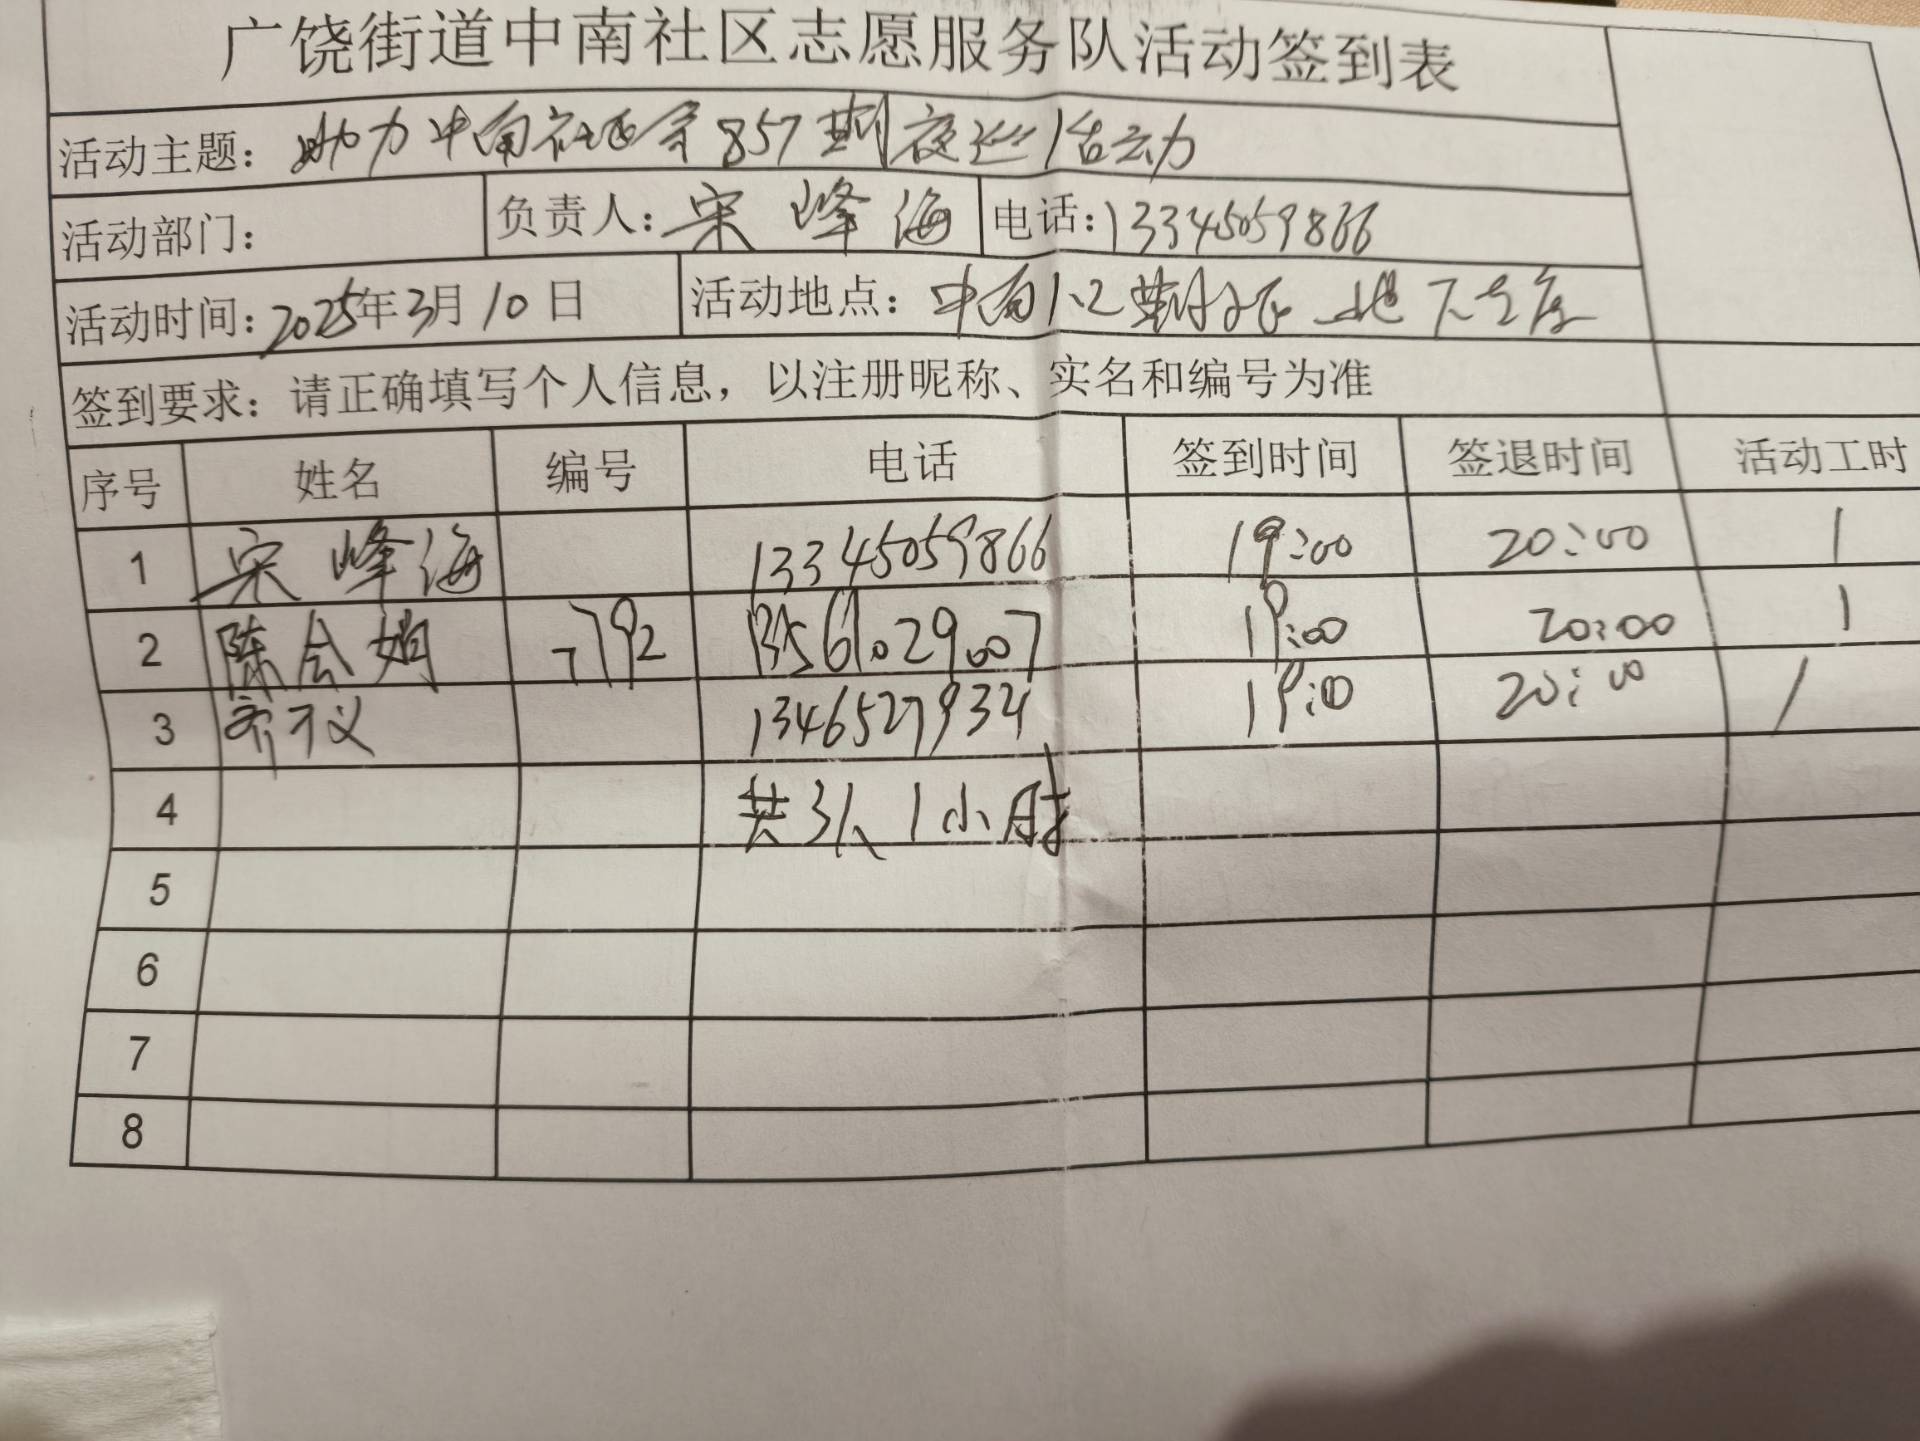 广饶街道中南社区志愿服务队活动签到表
活动主题：助力中南社区第857期夜巡活动
活动部门： 负责人：宋峰海 电话：13345059866
活动时间：2025年3月10日 活动地点：中南1.2期 地下车库
签到要求：请正确填写个人信息，以注册昵称、实名和编号为准
序号 姓名 编号 电话 签到时间 签退时间 活动工时
1 宋峰海 13345059866 19:00 20:00 1
2 陈会娟 792 13561029007 19:00 20:00 1
3 13465279324 19:00 20:00 1
4 共3人 1小时
5
6
7
8